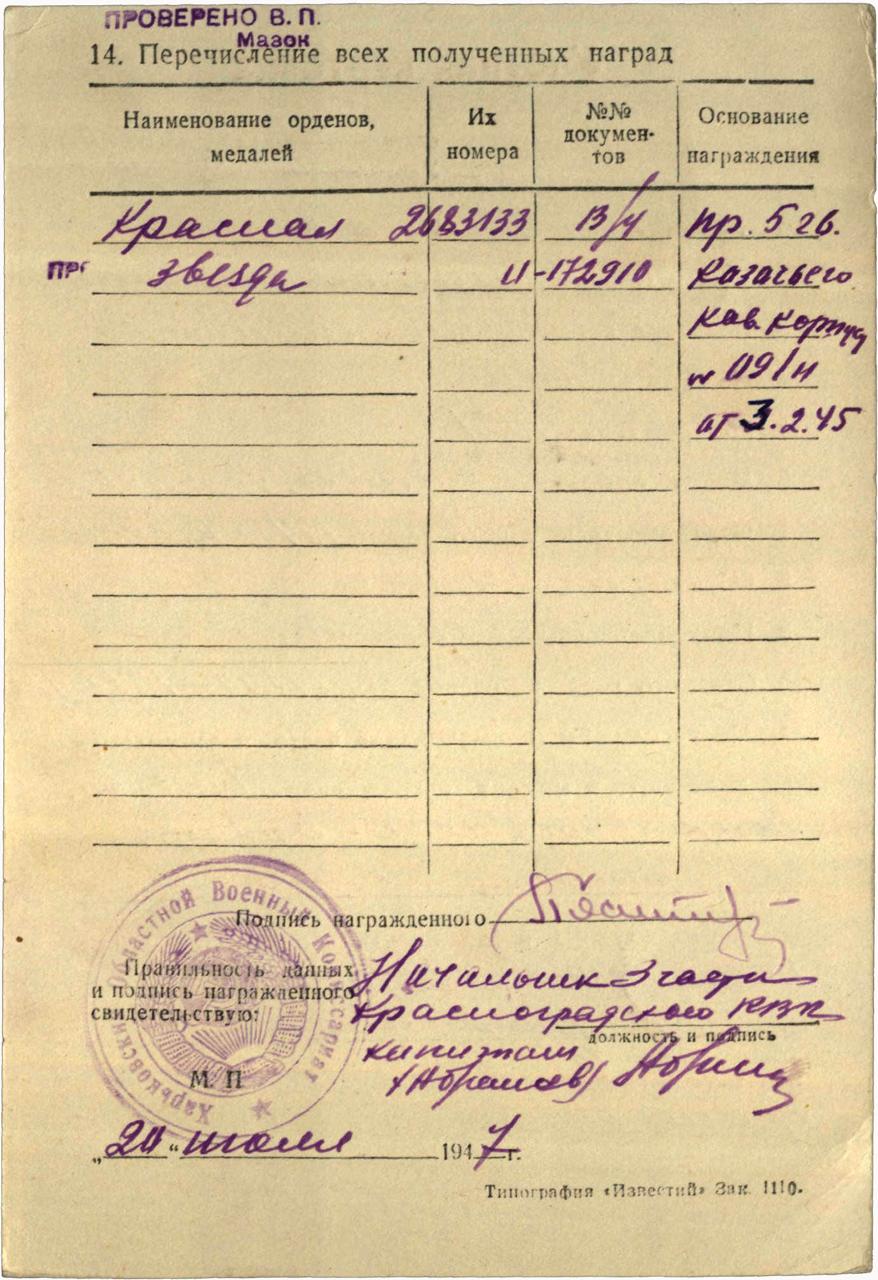 ПРОВЕРЕНО В. П.
Мазок
14. Перечисление всех полученных наград
Наименование орденов, медалей
Их номера
№№ докумен-тов
Основание награждения
Красная 2683133 В/ч пр. 5 гв.
ПР звезда И-172910 Казачьего
Кав. корпуса
№ 09/н
от 3.2.45
Подпись награжденного
Правильность данных
и подпись награжденного
свидетельствую:
Начальник 3 части
Красноградского РВК
должность и подпись
капитан
(Абрамов)
М. П
Харьковский Областной Военный Комиссариат
„20“ июля 1947 г.
Типография «Известий» Зак. 1110.